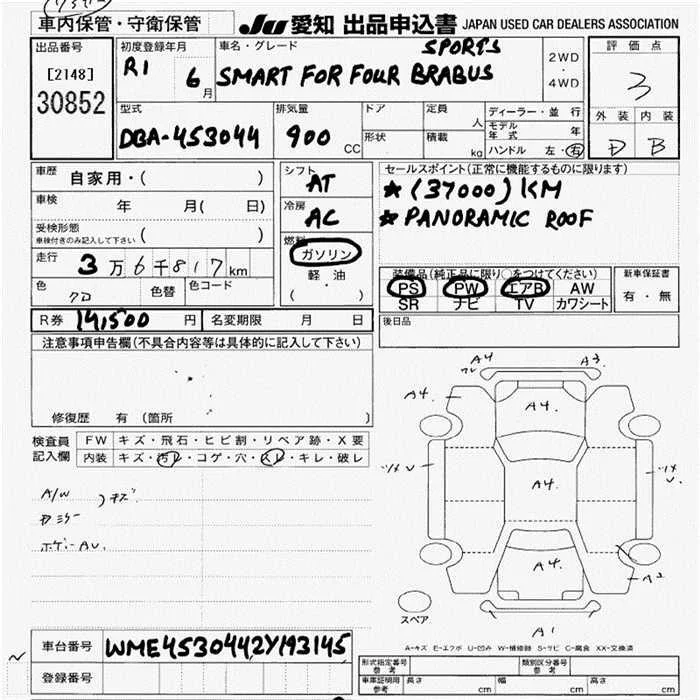 車内保管・守衛保管
JU 愛知 出品申込書 JAPAN USED CAR DEALERS ASSOCIATION
出品番号
[2148]
30852
初度登録年月
R1
6月
車名・グレード
SPORTS
SMART FOR FOUR BRABUS
2WD
・
4WD
評価点
3
外装 内装
D B
型式
DBA-453044
排気量
900 CC
ドア
形状
定員 人
積載 kg
ディーラー・並行
モデル年式 年
ハンドル 左・右
車歴 自家用・( )
車検 年 月( 日)
受検形態
車検付きのみ記入して下さい ( )
走行 3万6千817km
色 クロ 色替 色コード
シフト
AT
冷房
AC
燃料
ガソリン
軽油
( ・ )
セールスポイント(正常に機能するものに限ります)
★(37000)KM
★PANORAMIC ROOF
装備品(純正品に限り○をつけてください)
PS PW エアB AW
SR ナビ TV カワシート
新車保証書
有・無
R券 14,500円 名変期限 月 日
後日品
注意事項申告欄(不具合内容等は具体的に記入して下さい)
修復歴 有 (箇所 )
検査員
記入欄
FW キズ・飛石・ヒビ割・リペア跡・X要
内装 キズ・汚レ・コゲ・穴・スレ・キレ・破レ
A/W キズ
Dミラー
ボデーAU.
A4 A3
A4.
A4.
A4.
A4.
A2
A1
スペア
A-キズ E-エクボ U-凹み W-補修跡 S-サビ C-腐食 XX-交換済
車台番号 WME4530442Y193145
登録番号
形式指定番号
参考
類別区分番号
参考
車庫証明用
参考
長さ cm 幅 cm 高さ cm